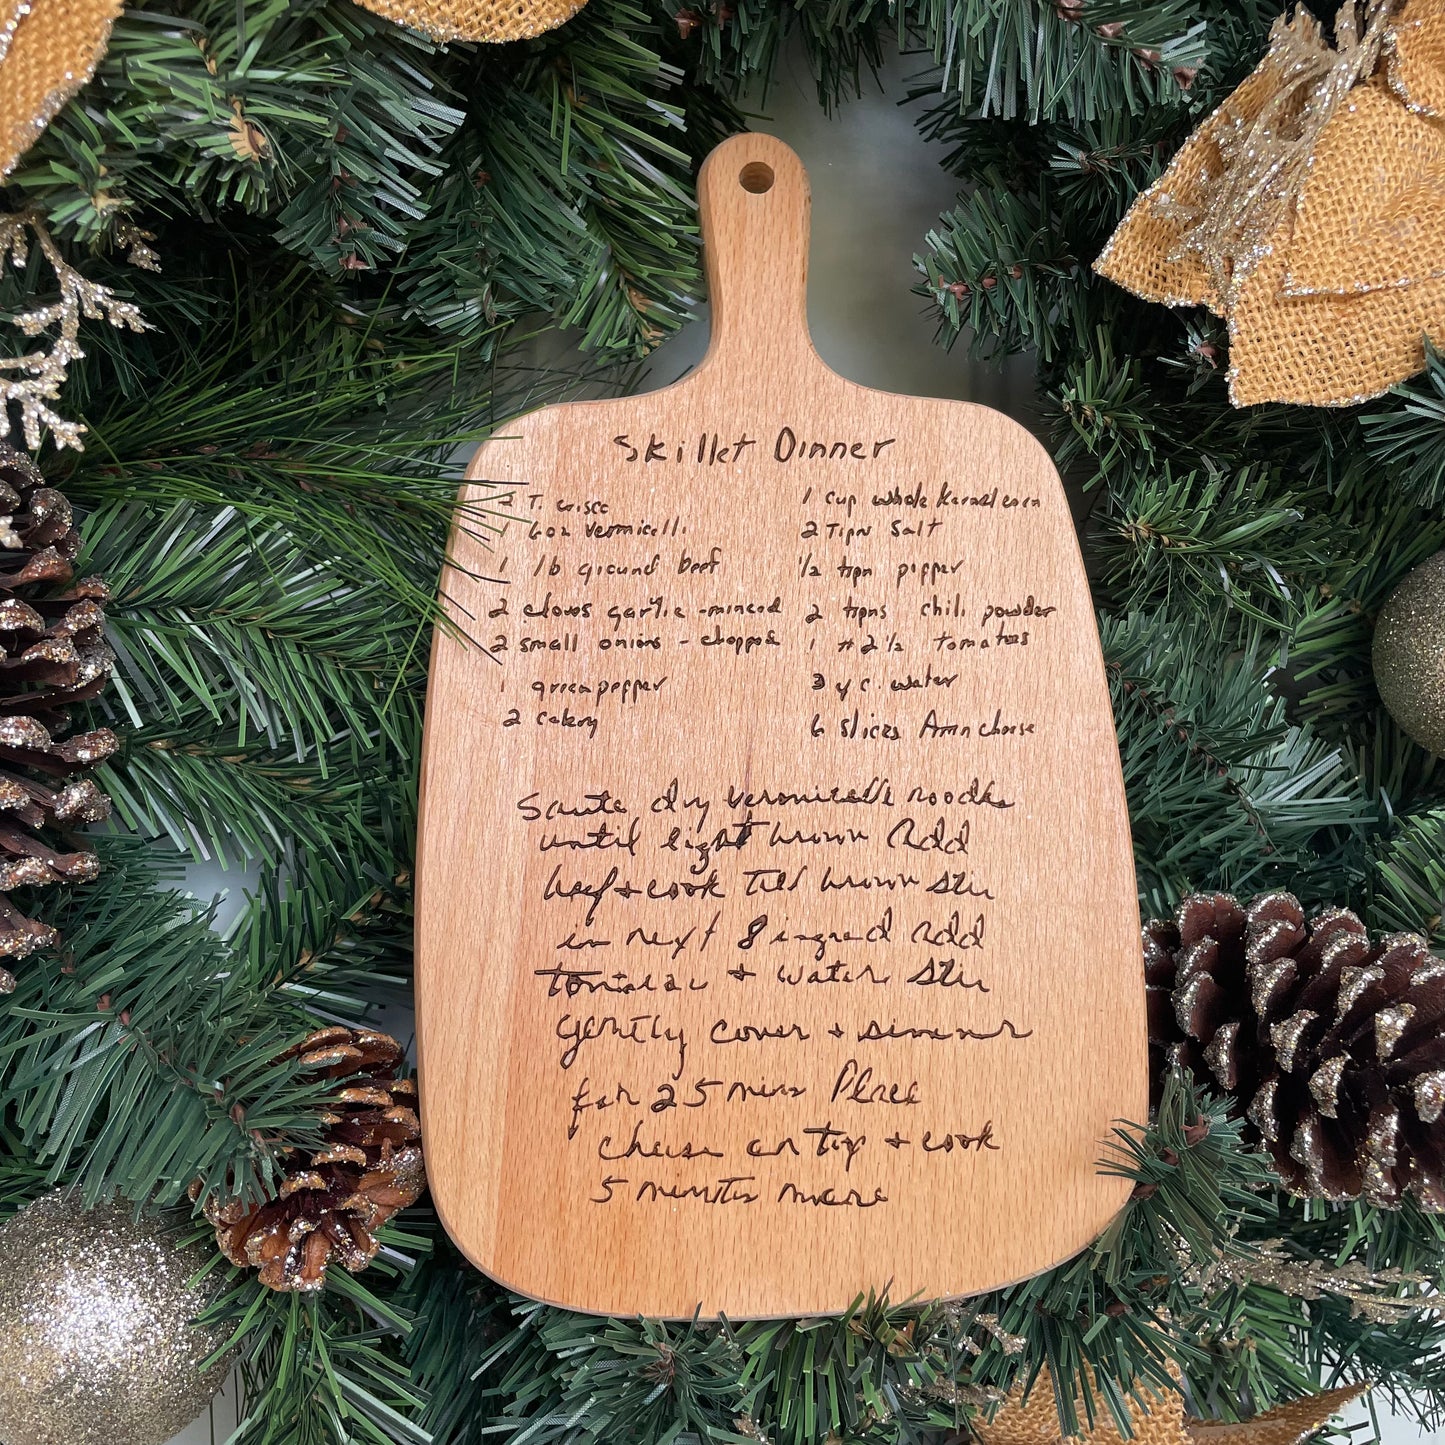 Skillet Dinner
2 T. crisco
1 6 oz vermicelli
1 lb ground beef
2 cloves garlic - minced
2 small onions - chopped
1 green pepper
2 celery
1 cup whole kernel corn
2 tspn salt
1/2 tspn pepper
2 tspns chili powder
1 #2 1/2 tomatoes
3/4 c. water
6 slices Amn cheese
Saute dry vermicelli noodles
until light brown Add
beef + cook till brown stir
in next 8 ingred Add
+ water stir
gently cover + simmer
for 25 mins Place
cheese on top + cook
5 minutes more